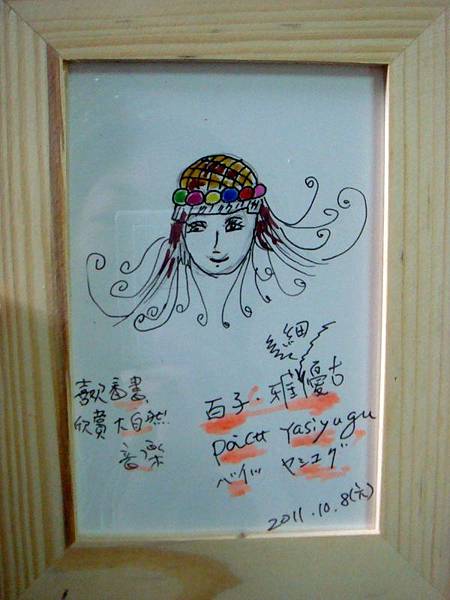 喜歡看書
欣賞大自然
音樂
細
百子·雅優古
Paicu Yasiyugu
ペイツ ヤシユグ
2011.10.8(六)